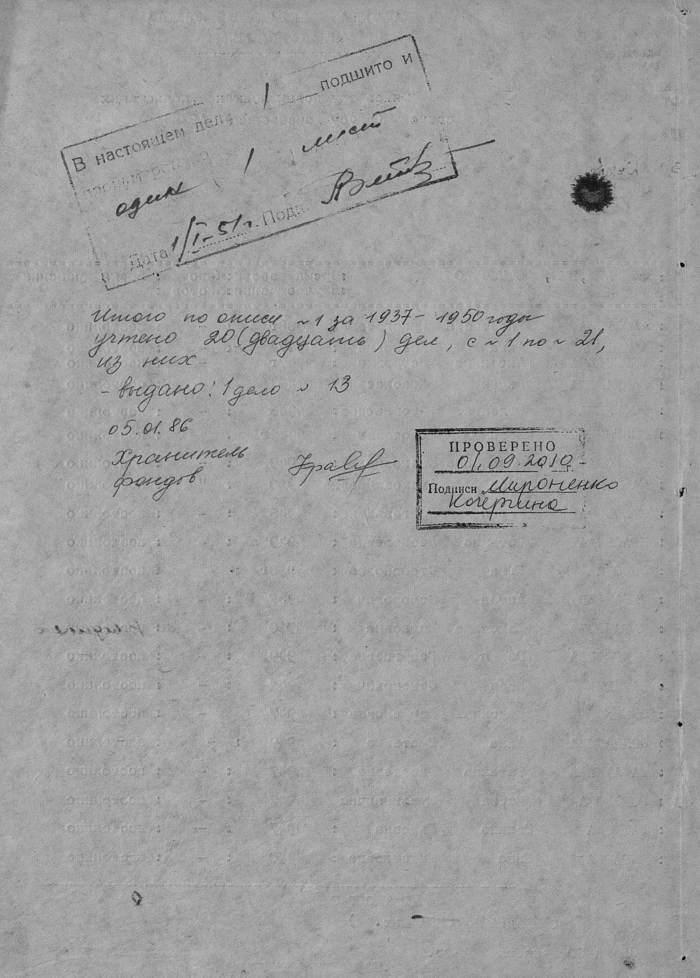 В настоящем деле 1 подшито и
пронумеровано
один 1 лист
Дата 1/I-51 г. Подп.
Итого по описи №1 за 1937-1950 годы
учтено 20 (двадцать) дел, с №1 по №21,
из них
- выдано: 1 дело № 13
05.01.86
Хранитель
фондов
ПРОВЕРЕНО
01.09.2010
Подписи Мироненко
Кочергина